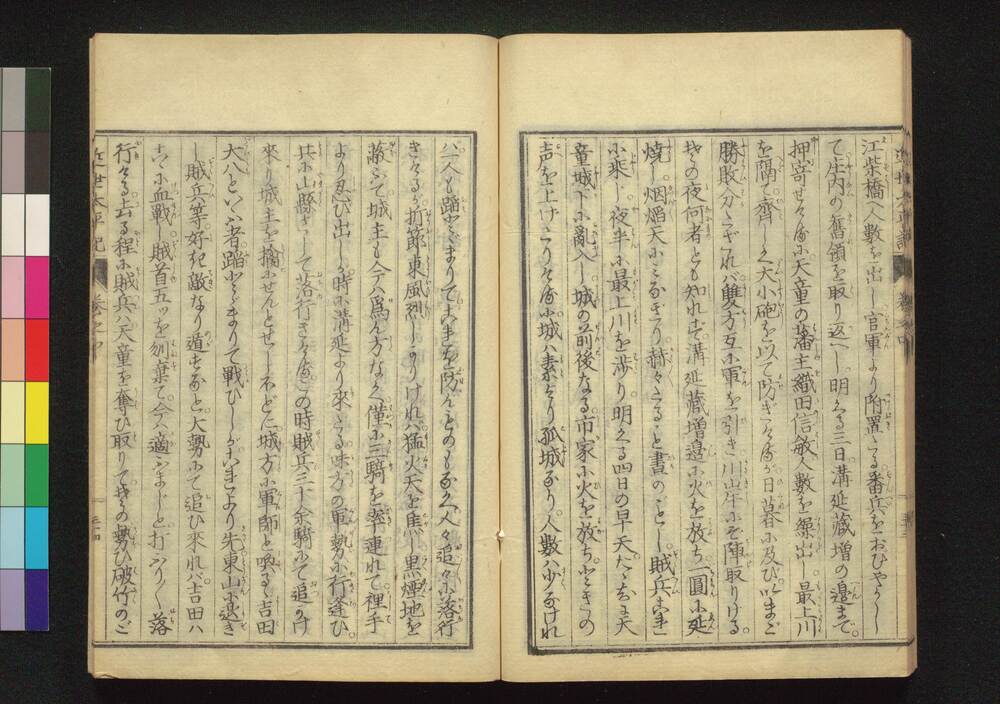 江柴橋へ人數を出し官軍より附置たる番兵をおひやらし
て庄内の舊領を取り返へし明くる三日溝延藏増の邉まで
押寄せける小天童の藩主織田信敏人數を繰出し最上川
を隔て齊しく大小砲を以て防ぎける日暮小及びいまだ
勝敗分たざれバ雙方互小軍を引き川岸小そ陣取りける
其の夜何者とも知れず溝延藏増邉小火を放ち一圓小延
焼し烟焔天小みなぎり赫々たること書のことし賊兵これ
小乘し夜半小最上川を渉り明くる四日の早天たゞち天
童城下小亂入し城の前後なる市家小火を放ちときの
声を上けたりける城ハ素より孤城なり人數ハ少なけれ
ハ一人も踏とゞまりてこれを防んとのものなく人々追々小落行
きける折節東風烈しかりけれバ猛火天を焦し黒煙地を
蔽ふて城主も今ハ爲ん方なく僅小三騎を率連れて裡手
より忍び出し時小溝延より來たる味方の軍勢小行逢ひ
共小山縣さして落行きけるこの時賊兵三十余騎小て追かけ
來り城主を擒小せんとせしほどに城方小軍師と喚るゝ吉田
大八といふ者踏とゞまりて戰ひしがこれより先東山小退き
し賊兵等好き敵なり道すなと大勢小て追ひ來れバ吉田ハ
こゝ小血戰し賊首五ツを刎棄て今ハ適ふまじと打ふりし落
行ける去る程小賊兵ハ天童を奪ひ取りて其の勢ひ破竹のご
近世太平記
巻之中
三十四